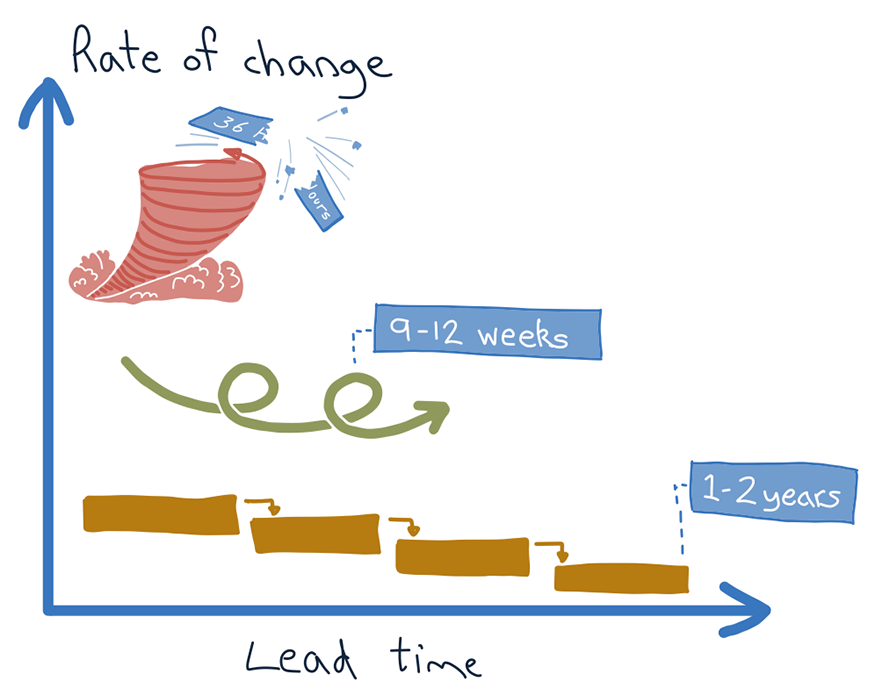 Rate of change
36 h
ours
9-12 weeks
1-2 years
Lead time